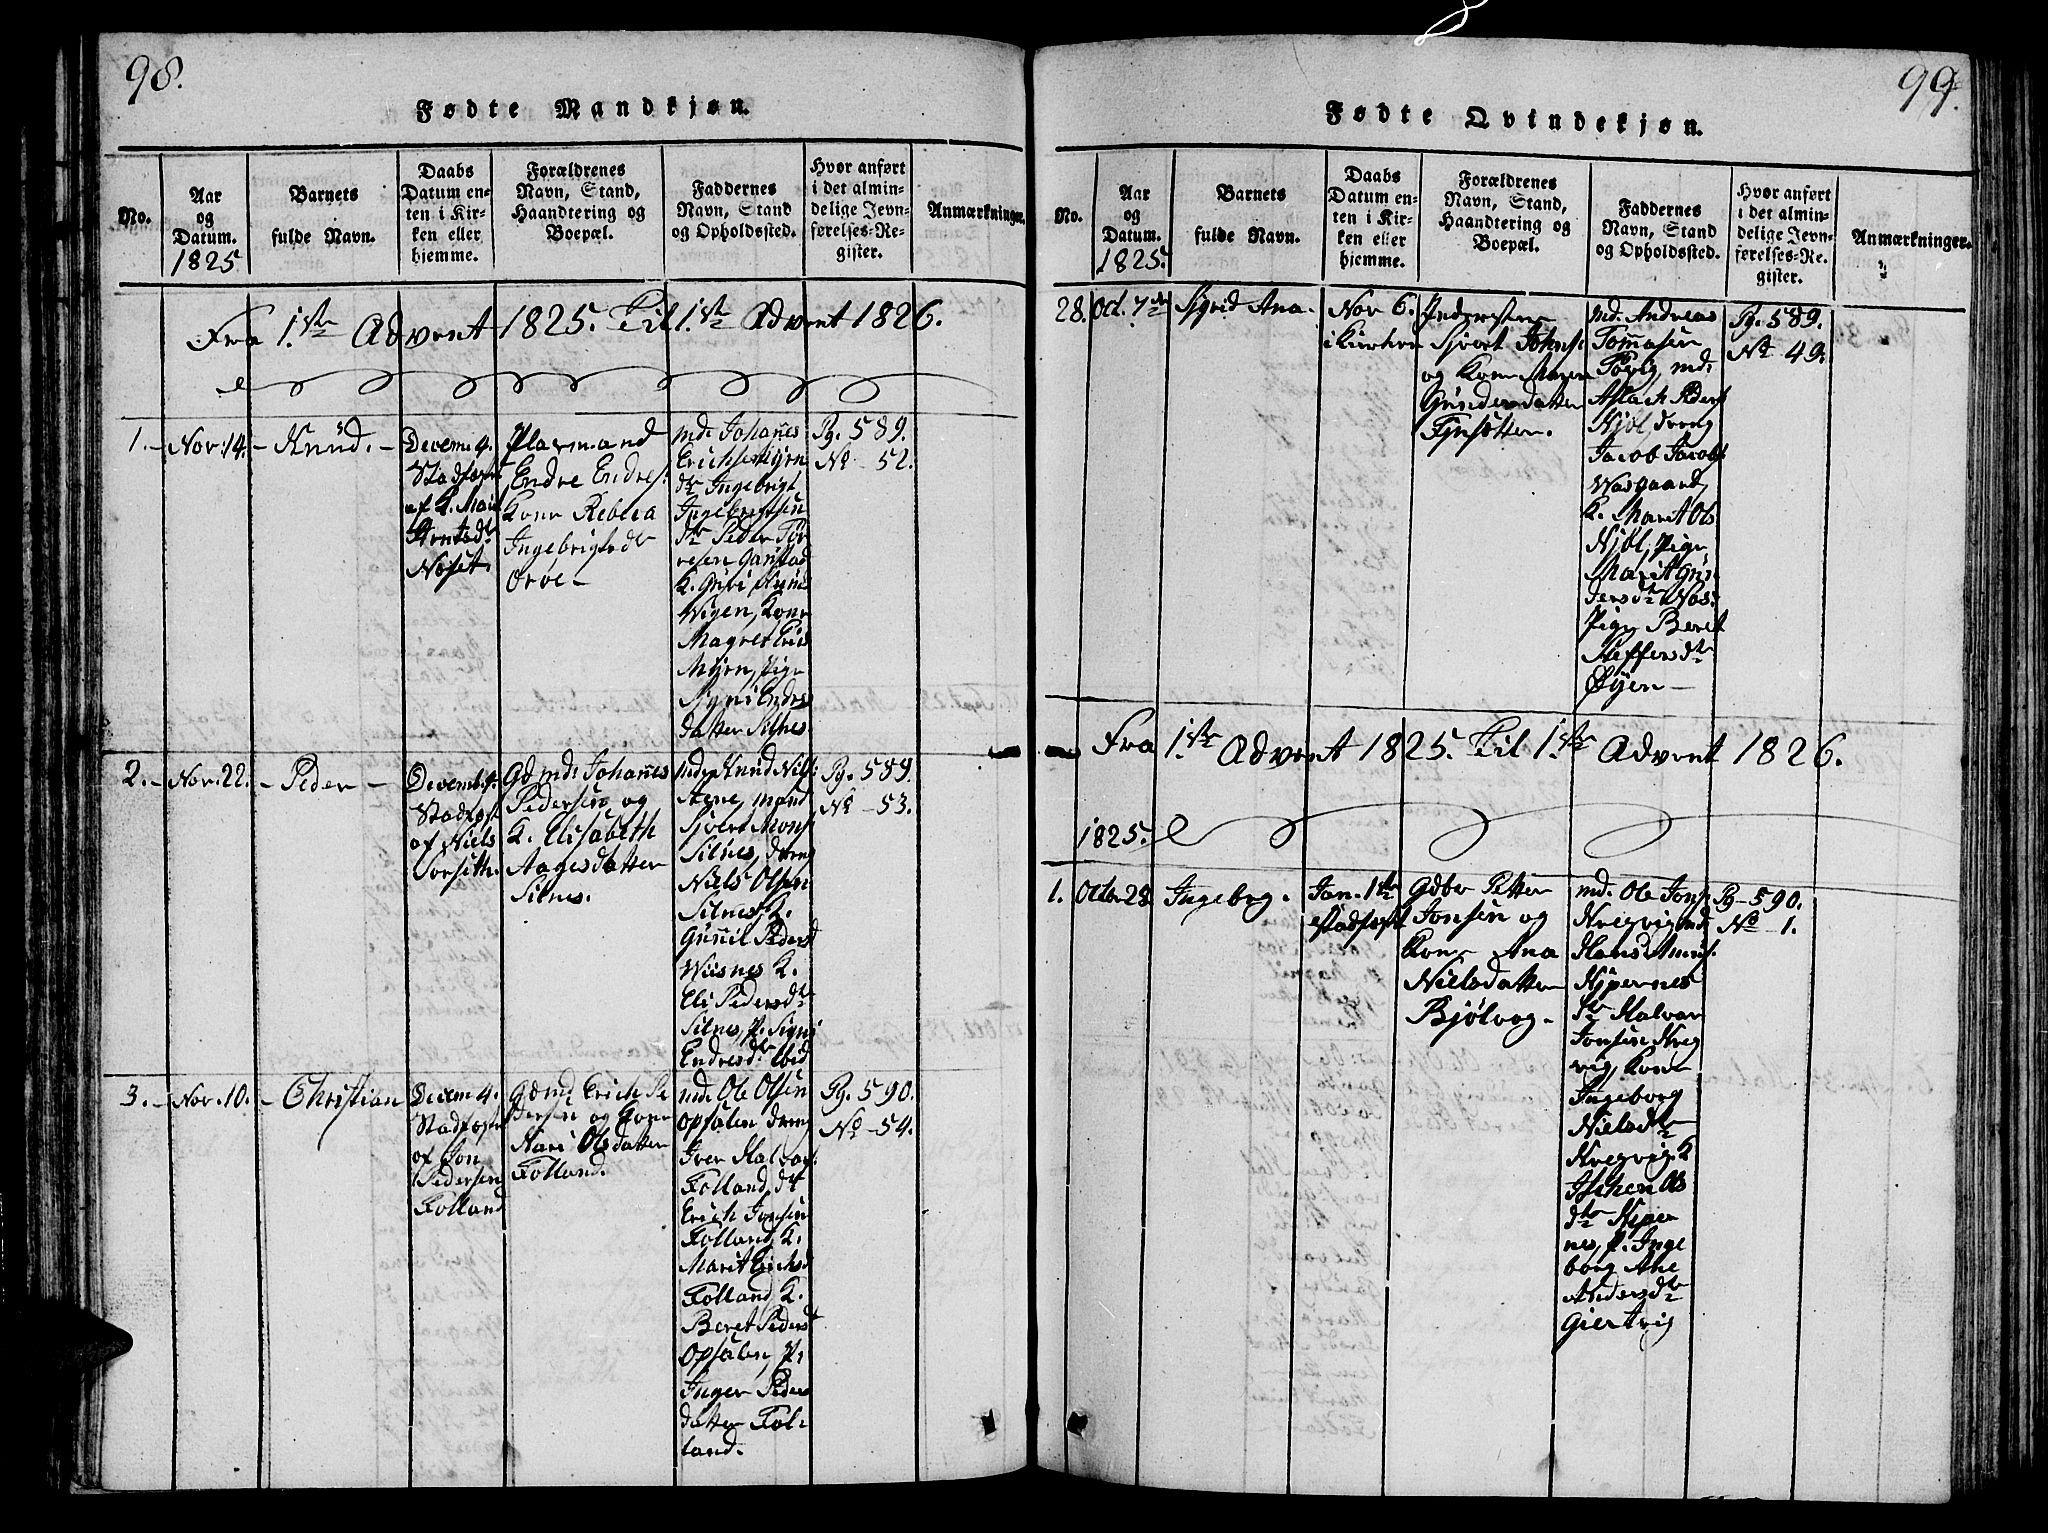 98.
Fødte Mandkjøn.
No.
Aar
og
Datum.
1825
Barnets
fulde Navn.
Daabs
Datum en-
ten i Kir-
ken eller
hjemme.
Forældrenes
Navn, Stand,
Haandtering og
Boepæl.
Faddernes
Navn, Stand
og Opholdssted.
Hvor anført
i det almin-
delige Jevn-
førelses-Re-
gister.
Anmærkninger.
Fra 1ste Advent 1825. Til 1ste Advent 1826.
1.
Nov. 14.
Knud.
Decem 4.
Stadfest
af K. Mari
Arntsdr
Nøset.
Plasmand
Endre Endres.
Kone Rebeca
Ingebrigtsdr
Orøe
md. Johanes
Erichsen Myrn
dr Ingebrigt
Ingebrigtsen
Dr Peder Tor
resen Garstad
K. Guri
Vigen, Kone
Magret Erics
Myrn, Pige
Signi Endres
datter Silnes.
Pg. 589.
No 52.
2.
Nov. 22.
Peder
Decem 4.
Stadfest
af Niels
Torseth.
Gdmd. Johanes
Pedersen og
K. Elisabeth
Aagesdatter
Silnes.
md. Knud Niels
mand
Sjvert Mons
Silnes, dreng
Niels Olsen
Silnes, K.
Gunil Peders
Wisnes K.
Eli Pedersdr
Silnes, P. Signi
Endresdr Ibid
Pg. 589.
No 53.
3.
Nov. 10.
Christian
Decem 4.
Stadfest
af Jon
Pedersen
Folland
Gdmd Erich Pe
dersen og Kone
Mari Olsdatter
Folland.
md. Ole Olsen
Opsalen dreng
Iver Halvor
Folland, dr
Erich Jonsen
Folland, K.
Marit Erichsd
Folland K.
Beret Pedersd
Opsalen, P.
Inger Peders
datter Fol-
land.
Pg. 590.
No 54.
99.
Fødte Qvindekjøn.
No.
Aar
og
Datum.
1825.
Barnets
fulde Navn.
Daabs
Datum en-
ten i Kir-
ken eller
hjemme.
Forældrenes
Navn, Stand,
Haandtering og
Boepæl.
Faddernes
Navn, Stand
og Opholdssted.
Hvor anført
i det almin-
delige Jevn-
førelses-Re-
gister.
Anmærkninger.
28.
Oct. 7de
Sigrid Ana.
Nov 6.
i Kirken
Inderster
Sjvert Johns.
og Kone Maren
Gundersdatter
md. Andreas
Tomasen
md.
Aslach Peders
Kjøl dreng
Jacob Jacobs
Wasgaard,
K. Maret Ols
Kjøl, Pige
Marit Gun
dersdr Vas.
Pige Beret
Steffensdr
Øyen
Pg. 589.
No 49.
Fra 1ste Advent 1825. Til 1ste Advent 1826.
1825.
1.
Octbr 28
Ingebog.
Jan. 1ste
stadfest
Gdbr Petter
Jonsen og
Kone Ana
Nielsdatter
Bjølvog.
md. Ole Jons.
Kregvig md
Hans Amus.
Kjpernes
dr Halvor
Jonsen Kreg
vig, Kone
Ingeborg
Nielsdr
Kregvig, K
Ols
dtr Kiper
nes, P. Inge
borg Ane
Andersdr
Giertvig
Pg 590.
No 1.